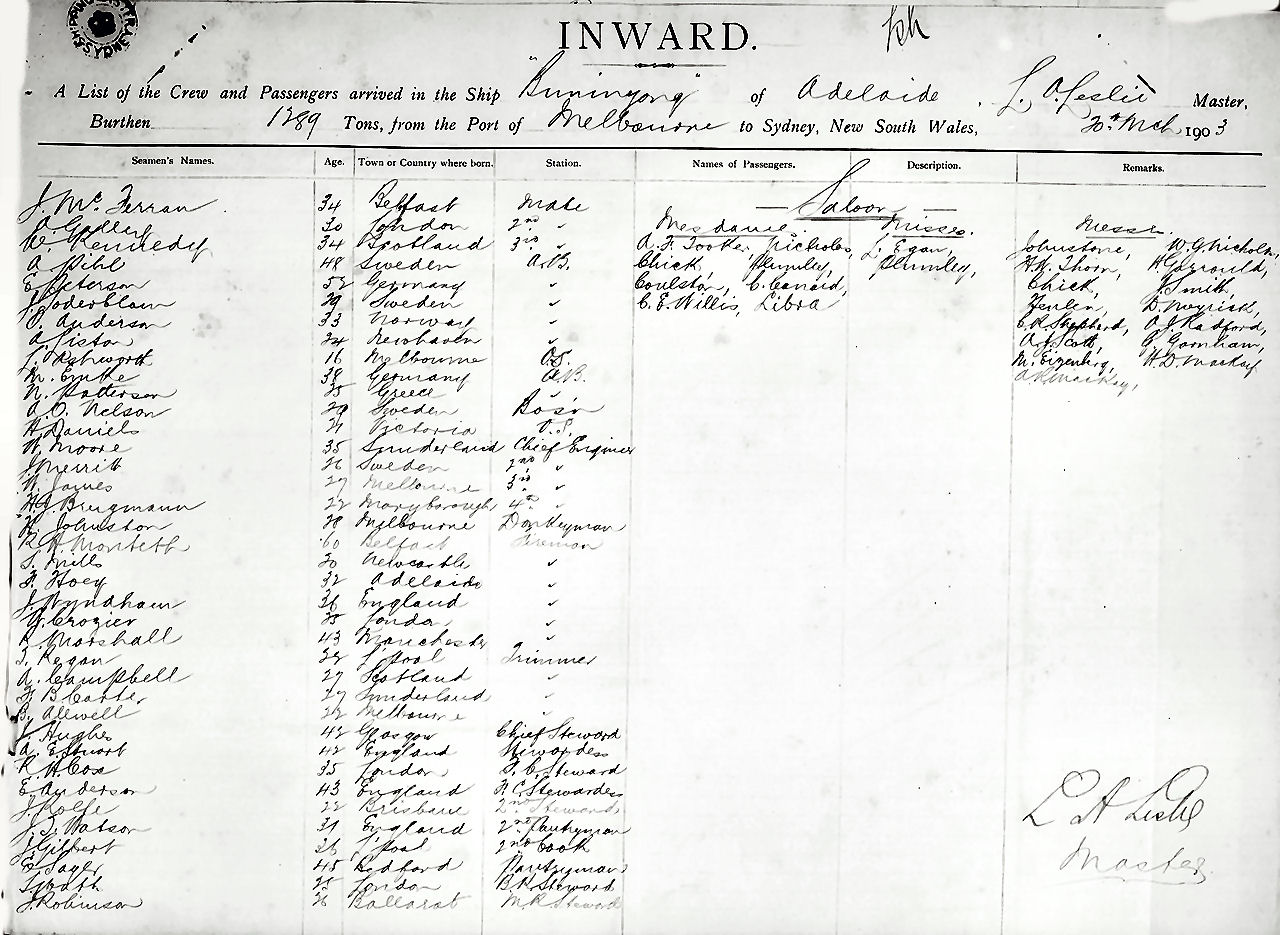 INWARD.
A List of the Crew and Passengers arrived in the Ship "Buninyong" of Adelaide, L. A. Leslie Master,
Burthen 1289 Tons, from the Port of Melbourne to Sydney, New South Wales, 30th Mch 1903
Seamen's Names. Age. Town or Country where born. Station. Names of Passengers. Description. Remarks.
J. McFerran 34 Belfast Mate
— Saloon —
30 London 2nd "
Mesdames. Misses. Messrs.
W. Kennedy 34 Scotland 3rd "
A. F. Tooke, Nicholas, L. Egan, Johnstone, W. G. Nicholas,
A. Pihl 48 Sweden A.B.
Chick, Plumley, Plumley, H. W. Thorn, H. Garrould,
E. Peterson 52 Germany "
Coulston, C. Canard, Chick, Smith,
J. Soderblom 29 Sweden "
C. E. Willis, Libra D. Meyrick,
O. Anderson 33 Norway "
E. R. Shepherd, A. J. Radford,
A. Liston 24 Newhaven "
A. J. Scott, G. Garnham,
L. Ashworth 16 Melbourne O.S.
M. Eizenberg, H. D. Mackay
M. Emke 38 Germany A.B.
A. R. Mackay,
N. Patterson 35 Greece "
A. O. Nelson 29 Sweden Bosn
H. Daniels 21 Victoria O.S.
W. Moore 35 Sunderland Chief Engineer
J. Merritt 26 Sweden 2nd "
W. James 27 Melbourne 3rd "
H. J. Brugmann 22 Maryborough 4th "
H. Johnston 28 Melbourne Donkeyman
R. H. Monteth 60 Belfast Fireman
S. Mills 30 Newcastle "
F. Hoey 32 Adelaide "
J. Wyndham 36 England "
G. Crozier 35 London "
R. Marshall 43 Manchester "
T. Regan 32 L'pool Trimmer
A. Campbell 27 Scotland "
F. B. Carter 27 Sunderland "
B. Allwell 22 Melbourne "
J. Hughes 42 Glasgow Chief Steward
A. E. Stuart 42 England Stewardess
R. H. Cox 35 London F. C. Steward
E. Anderson 43 England F. C. Stewardess
J. Rolfe 22 Brisbane 2nd Steward
L A Leslie
J. S. Watson 31 England 2nd Pantryman
J. Gilbert 36 L'pool 2nd Cook
Master
E. Sager 45 Bedford Pantryman
25 London B. R. Steward
J. Robinson 26 Ballarat M. R. Steward